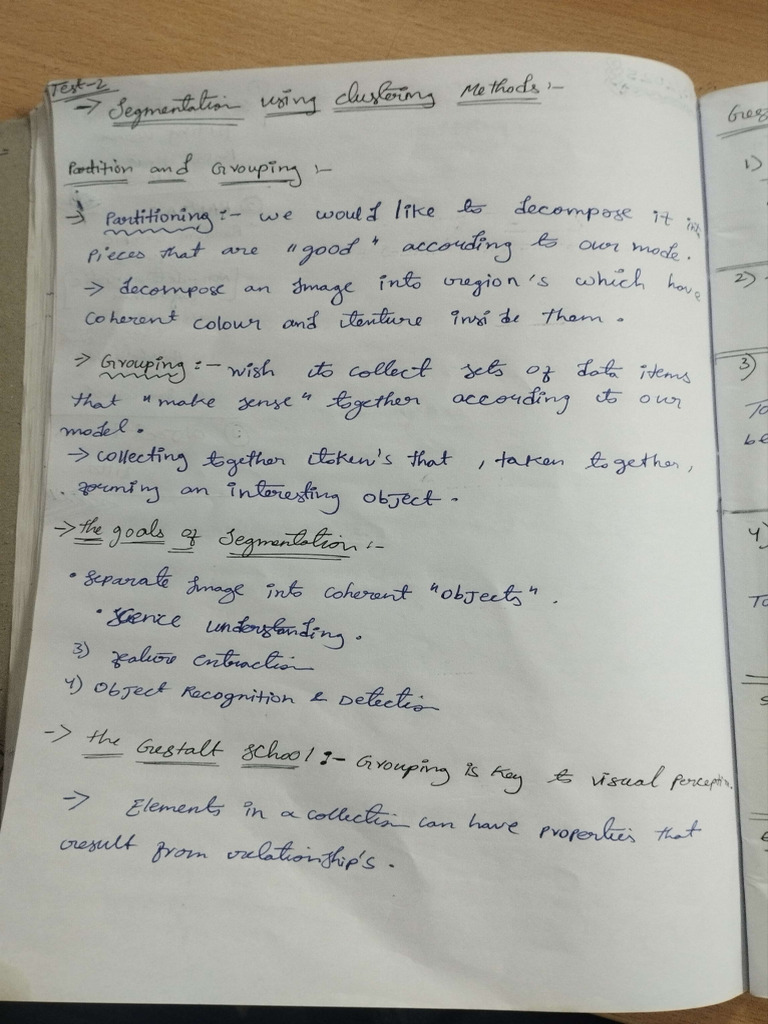 Test-2
→ Segmentation using clustering Methods :-
Partition and Grouping :-
→ Partitioning :- we would like to decompose it into
pieces that are "good" according to our mode.
→ decompose an Image into region's which have
coherent colour and texture inside them.
→ Grouping :- wish to collect sets of data items
that "make sense" together according to our
model.
→ collecting together token's that, taken together,
forming an interesting object.
→ the goals of Segmentation :-
• separate Image into coherent "objects".
• science understanding.
3) feature extraction
4) Object Recognition & Detection
→ the Gestalt school :- Grouping is key to visual perception.
→ Elements in a collection can have properties that
result from relationship's.
1)
2)
3)
To
be
4)
To